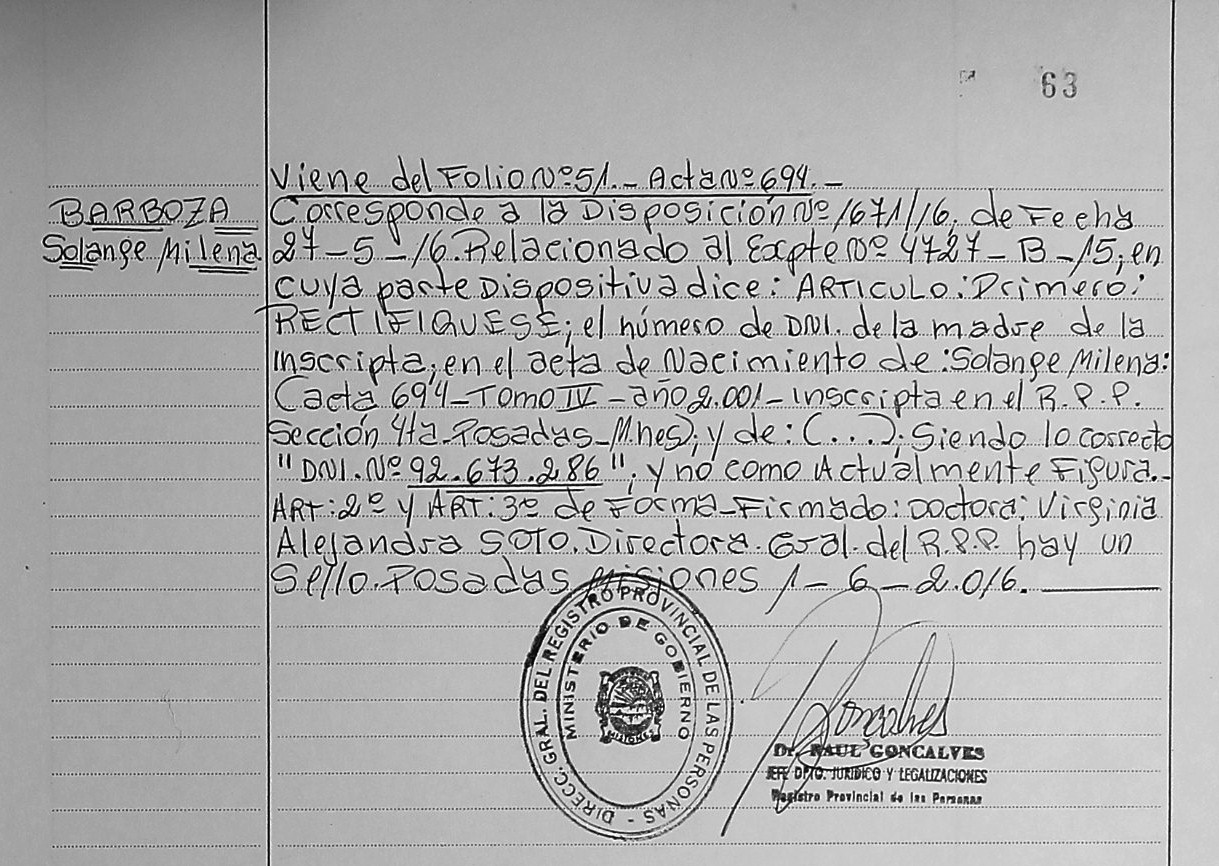 63
Viene del Folio Nº 51.- Acta Nº 694.-
BARBOZA
Solange Milena
Corresponde a la Disposición Nº 1671/16, de Fecha
27-5-16. Relacionado al Expte Nº 4727-B-15, en
cuya parte Dispositiva dice: ARTICULO: Primero:
RECTIFIQUESE; el número de DNI. de la madre de la
inscripta, en el acta de Nacimiento de: Solange Milena:
Cacta 694-Tomo IV-año 2.001-inscripta en el R.P.P.
Sección 4ta-Posadas-Mnes); y de: (...); Siendo lo correcto
"DNI. Nº 92.673.286"; y no como Actualmente Figura.-
ART: 2º y ART: 3º de Forma-Firmado: Doctora: Virginia
Alejandra SOTO. Directora. Gral. del R.P.P. hay un
Sello. Posadas Misiones 1-6-2.016.
DIRECC. GRAL. DEL REGISTRO PROVINCIAL DE LAS PERSONAS -
MINISTERIO DE GOBIERNO
MISIONES
Goncalves
Dr. RAUL GONCALVES
JEFE DPTO. JURIDICO Y LEGALIZACIONES
Registro Provincial de las Personas